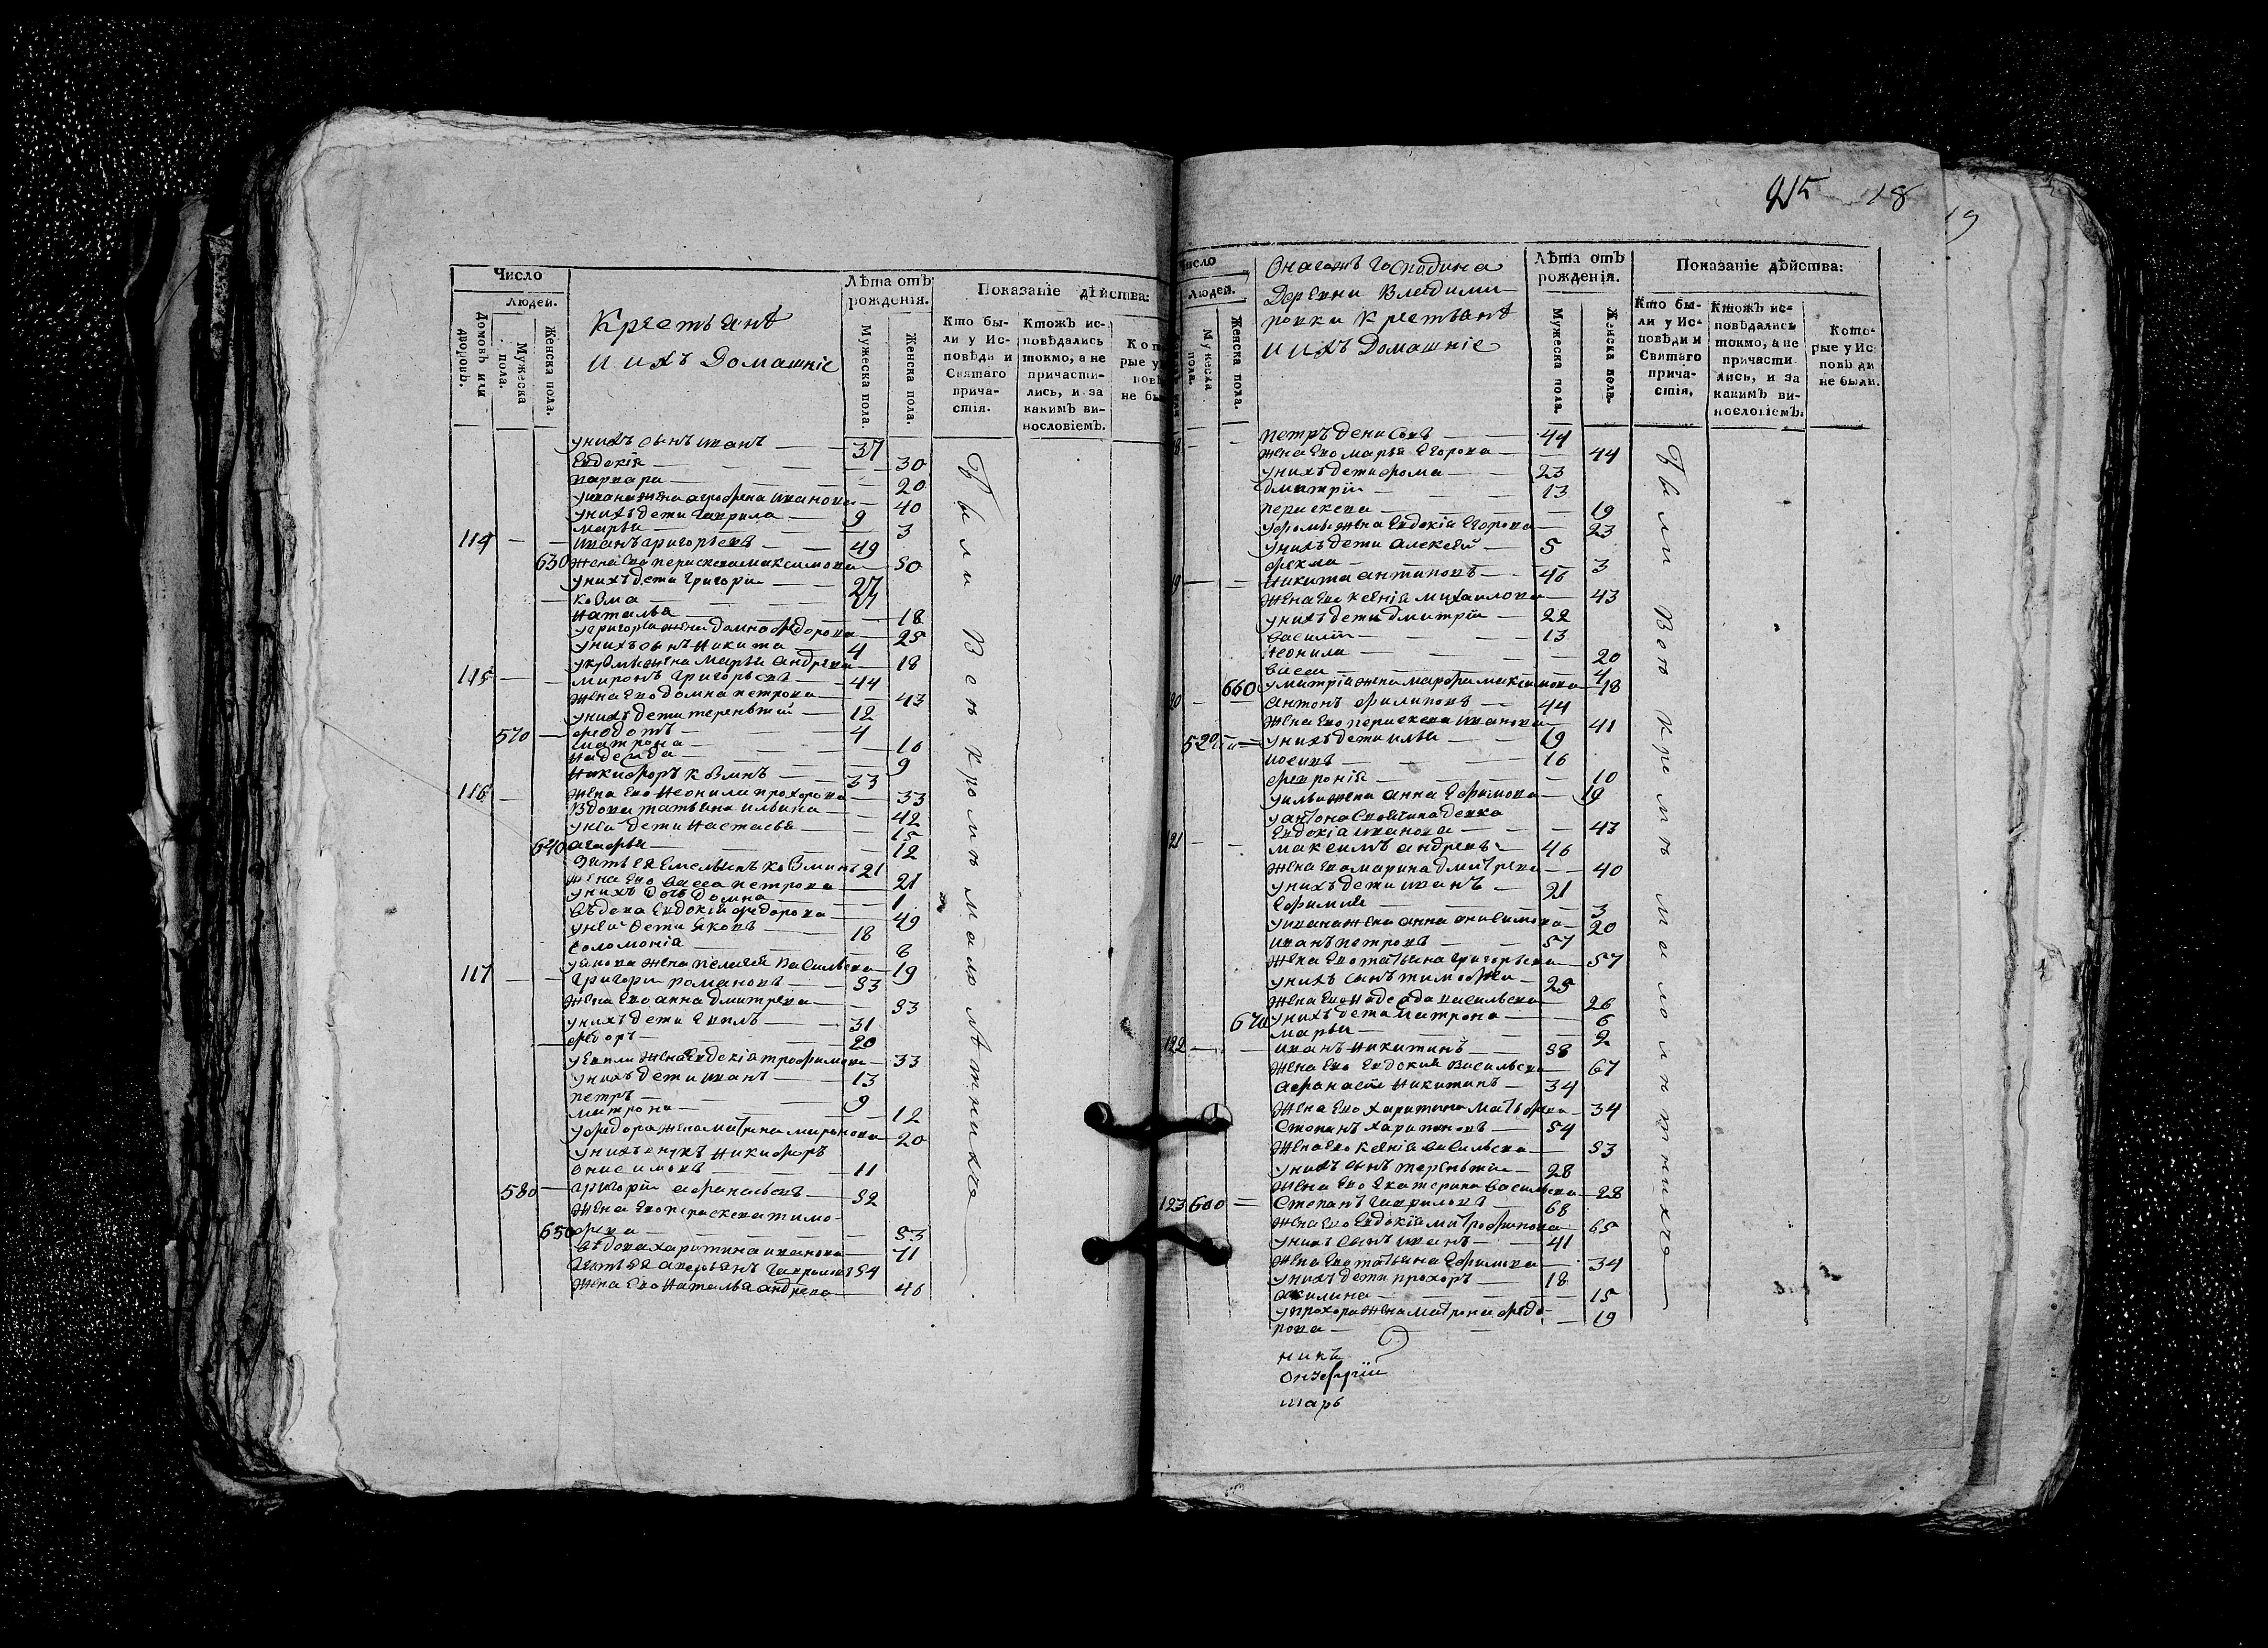 Число
Людей.
Домовъ или дворовъ.
Мужеска пола.
Женска пола.
Крестьянѣ
и ихъ Домашніе
Лѣта отъ рожденія.
Мужеска пола.
Женска пола.
Показаніе дѣйства:
Кто бы-
ли у Ис-
повѣди и
Святаго
прича-
стія.
Ктожъ ис-
повѣдались
токмо, а не
причасти-
лись, и за
какимъ ви-
нословіемъ.
Кот
рые у
повѣ
не бы
унихъ сынъ иванъ 37
Евдокія 30
варвара 20
уивана жена агрофена иванова 40
унихъ дети Гаврила 9
марья 3
114 иванъ григорьевъ 49
630 жена Его перасковея максимова 50
унихъ дети Григори 27
козма 27
Наталья 18
угригорья жена домна федорова 25
унихъ сынъ Никита 4
укозмы жена марья андрева 18
115 миронъ Григорьевъ 44
жена Его домна петрова 43
унихъ дети терентий 12
570 федотъ 4
матрона 16
надежда 9
116 Никифоръ козминъ 33
жена Его Неонила прохорова 33
Вдова татьяна ильина 42
уней дети Настасья 15
640 агафья 12
Зять Ея Емельянъ козминъ 21
жена Его васса петрова 21
унихъ дочь Домна 1
вдова Евдокия федорова 49
уней дети Яковъ 18
соломонія 6
уякова жена пелагея васильева 19
117 Григори романовъ 53
жена Его анна дмитрева 53
унихъ дети Евилъ 31
федоръ 20
жена Евдокіа трофимова 33
унихъ дети иванъ 13
петръ 9
матрона 12
уфедора жена матрона миронова 20
унихъ внукъ Никифоръ
онисимовъ 11
580 григории афанасьевъ 52
жена Его перасковея тимо-
650 фева 53
вдова харитина иванова 71
Зять Ея аверьянъ Гавриловъ 54
жена Его Наталья андрева 46
Были Всѣ кромѣ малолѣтнихъ
215 18
19
Число
Людей.
Мужеска пола.
Женска пола.
Онагожъ Господина
Деревни Владими-
ровки крестьянѣ
и ихъ Домашніе
Лѣта отъ рожденія.
Мужеска пола.
Женска пола.
Показаніе дѣйства:
Кто бы-
ли у Ис-
повѣди и
Святаго
прича-
стія.
Ктожъ ис-
повѣдались
токмо, а не
причасти-
лись, и за
какимъ ви-
нословіемъ.
Кото-
рые у Ис
повѣ ди
не были.
8 петръ денисовъ 44
жена Его марья Егорова 44
унихъ дети фома 23
дмитрій 13
перасковея 19
уфомы жена Евдокія Егорова 23
унихъ дети алексей 5
фекла 3
19 Никита антиповъ 46
жена Его ксенія михаилова 43
унихъ дети дмитрій 22
василій 13
Неонила 20
васса 4
660 умитрія жена марфа максимова 18
20 антонъ филиповъ 44
жена Его перасковея иванова 41
590 унихъ дети илья 19
16
февронія 10
уильи жена анна Ефимова 19
уантона своячина девка
Евдокіа иванова 43
21 максимъ андревъ 46
жена Его марина дмитрева 40
унихъ дети иванъ 21
Ефимия 3
уивана жена анна онисимова 20
иванъ петровъ 57
жена Его татьяна григорьева 57
унихъ сынъ тимофеи 25
жена Его Надежда васильева 26
670 унихъ дети матрона 6
марья 2
122 иванъ Никитинъ 58
жена Его Евдокия васильева 67
афанасеи Никитинъ 34
жена Его харитина матфеева 34
Степанъ харитоновъ 54
жена Его ксенія васильева 53
унихъ сынъ терентии 28
жена Его Екатерина васильева 28
123 600 Степанъ Гавриловъ 68
жена Его Евдокія митрофанова 65
унихъ сынъ иванъ 41
жена Его татьяна Ефимова 34
унихъ дети прохоръ 18
акилина 15
упрохора жена матрона федо-
рова 19
Были Всѣ кромѣ малолѣтнихъ
никъ
Онуфрій
шарь